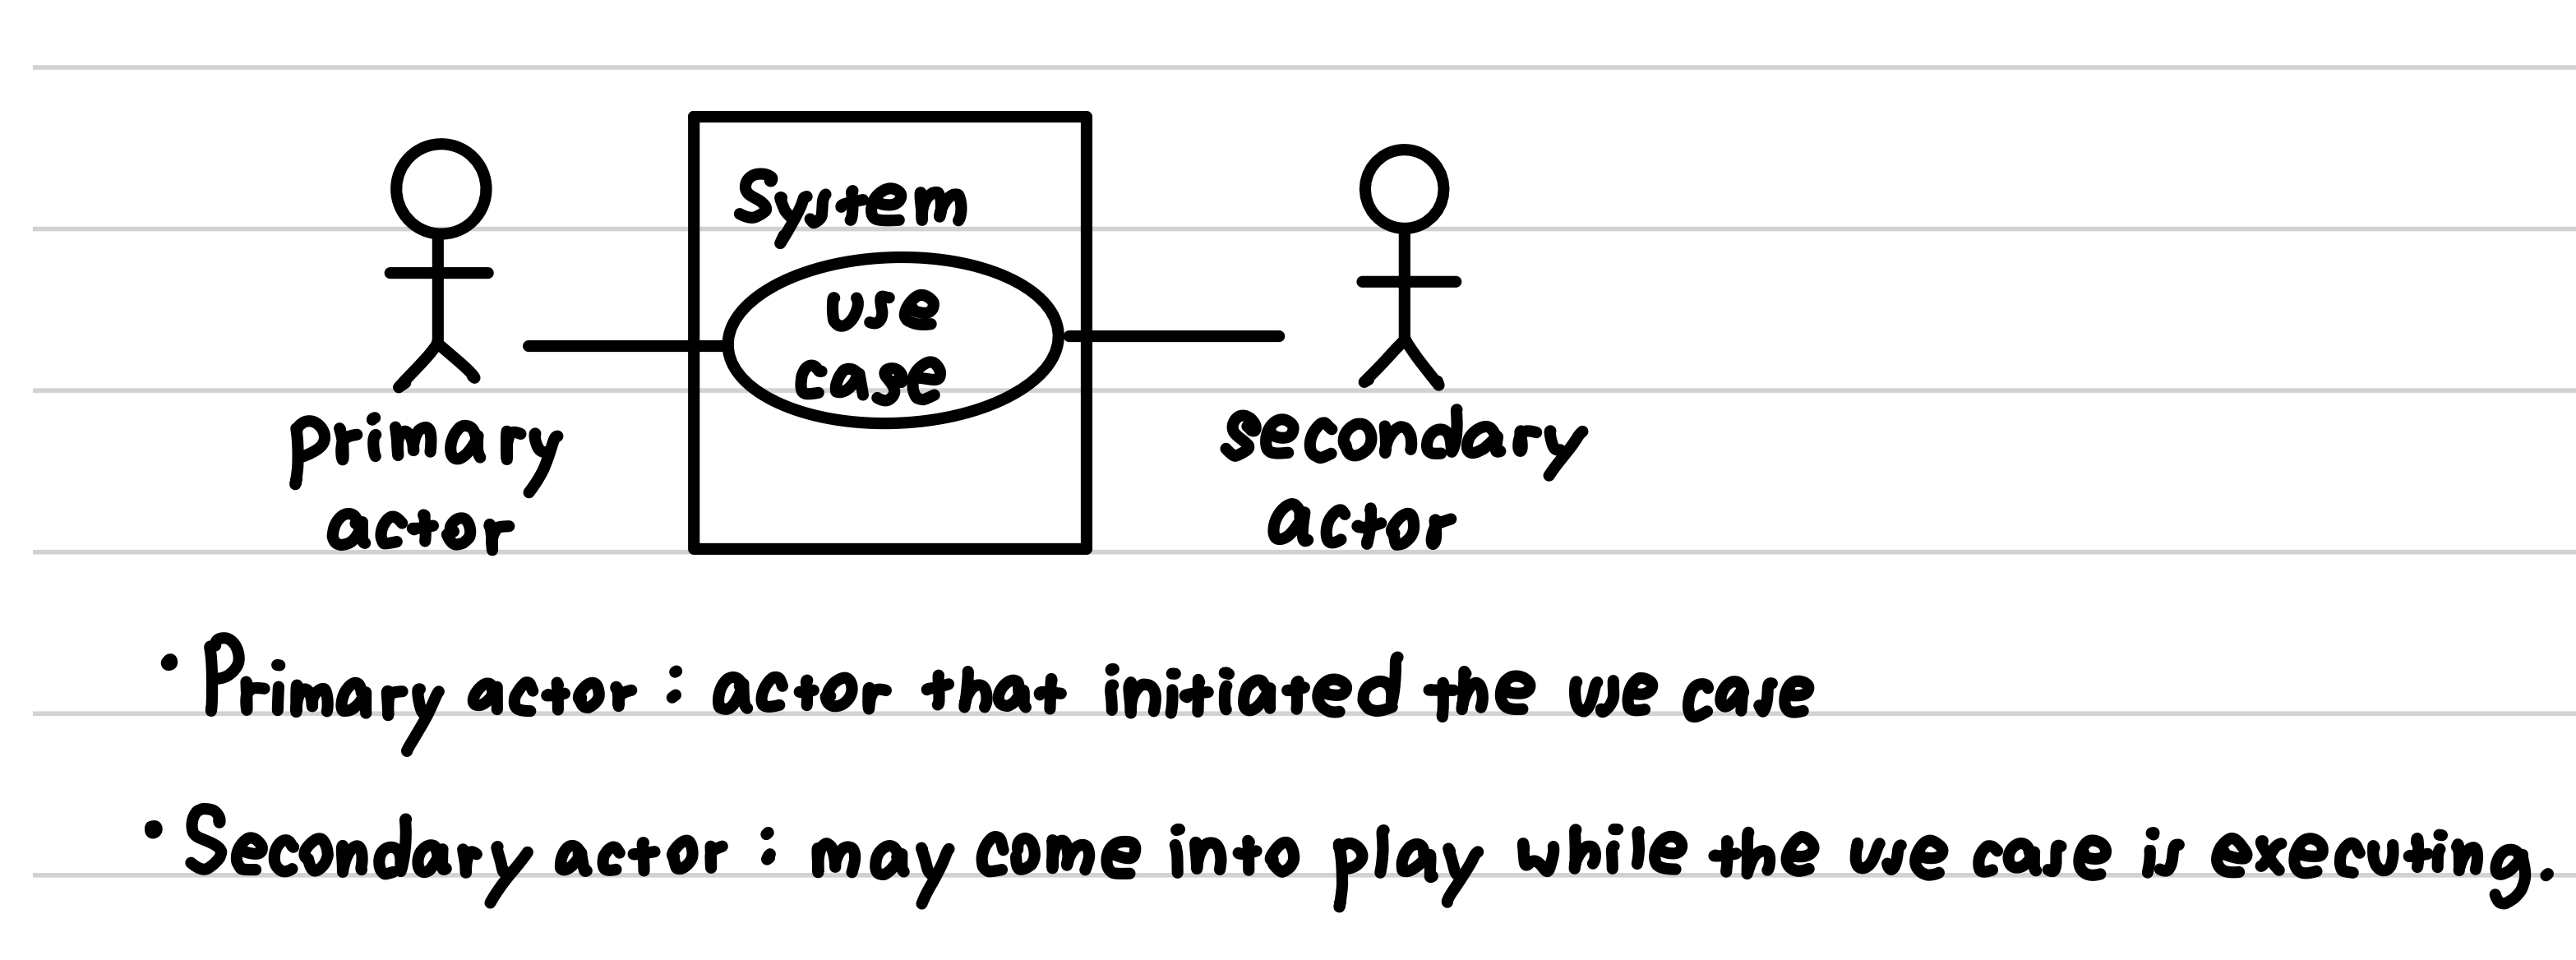 System
use
case
primary
actor
secondary
actor
· Primary actor : actor that initiated the use case
· Secondary actor : may come into play while the use case is executing.